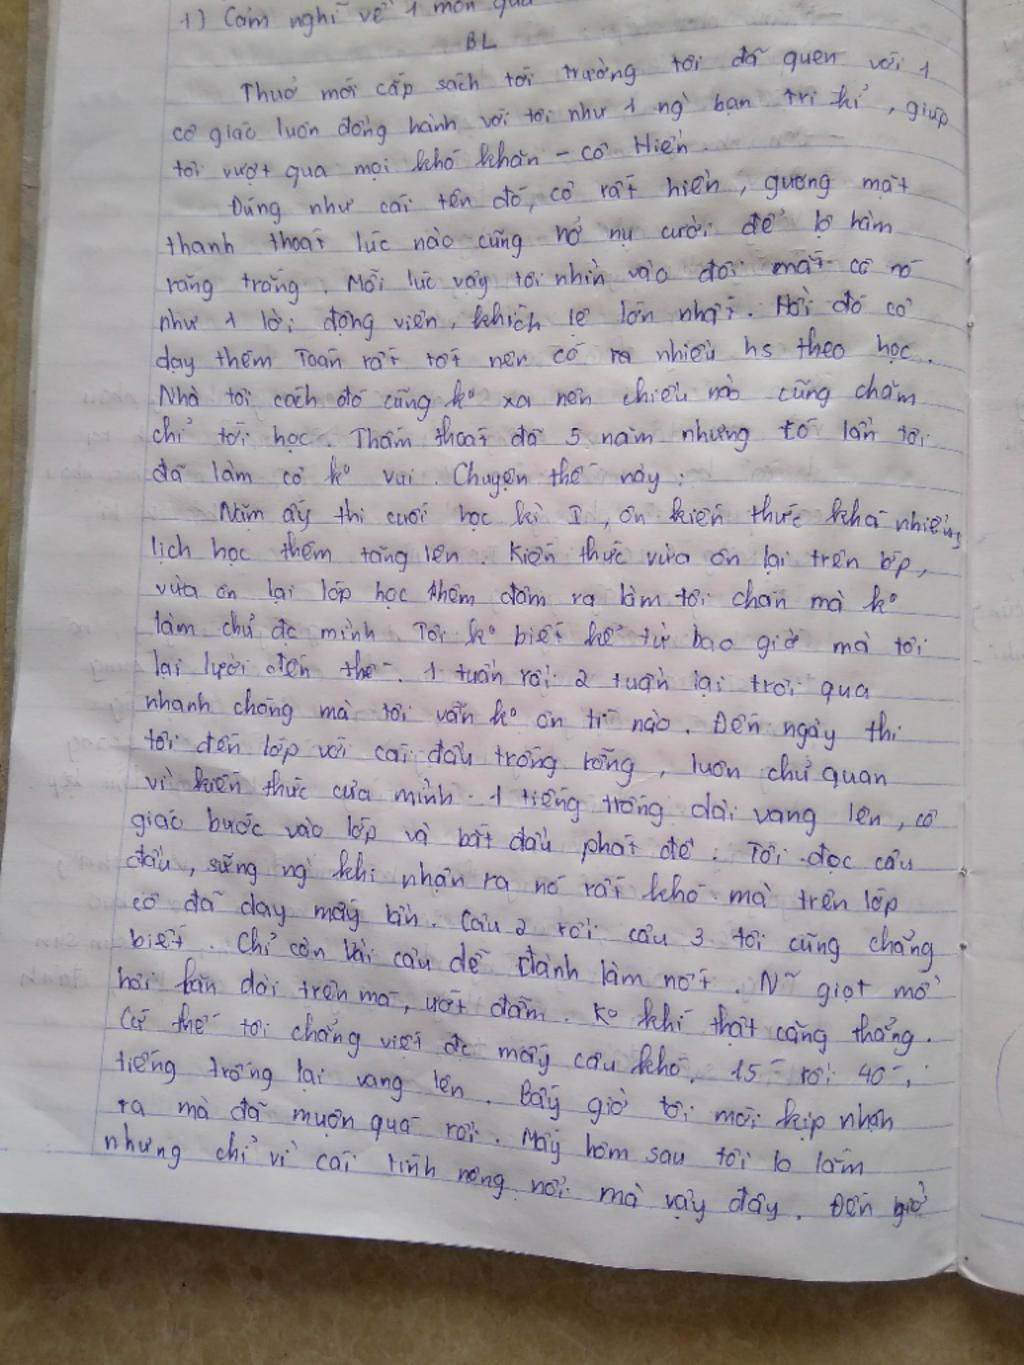 1) Cảm nghĩ về 1 món quà
BL
Thuở mới cắp sách tới trường tôi đã quen với 1
cô giáo luôn đồng hành với tôi như 1 ng` bạn tri kỉ, giúp
tôi vượt qua mọi khó khăn - cô Hiền.
Đúng như cái tên đó, cô rất hiền, gương mặt
thanh thoát lúc nào cũng nở nụ cười để lộ hàm
răng trắng. Mỗi lúc vậy tôi nhìn vào đôi mắt cô nó
như 1 lời động viên, khích lệ lớn nhất. Hồi đó cô
dạy thêm Toán rất tốt nên có ra nhiều hs theo học.
Nhà tôi cách đó cũng ko xa nên chiều nào cũng chăm
chỉ tới học. Thấm thoát đã 5 năm nhưng có lần tôi
đã làm cô ko vui. Chuyện thế này:
Năm ấy thi cuối học kì I, ôn kiến thức khá nhiều,
lịch học thêm tăng lên. Kiến thức vừa ôn lại trên lớp,
vừa ôn lại lớp học thêm đâm ra làm tôi chán mà ko
làm chủ đc mình. Tôi ko biết kể từ bao giờ mà tôi
lại lười đến thế. 1 tuần rồi 2 tuần lại trôi qua
nhanh chóng mà tôi vẫn ko ôn tí nào. Đến ngày thi
tôi đến lớp với cái đầu trống rỗng, luôn chủ quan
vì kiến thức của mình. 1 tiếng trống dài vang lên, cô
giáo bước vào lớp và bắt đầu phát đề. Tôi đọc câu
đầu, sững ng` khi nhận ra nó rất khó mà trên lớp
cô đã dạy mấy lần. Câu 2 rồi câu 3 tôi cũng chẳng
biết. Chỉ còn vài câu dễ đành làm nốt. N~ giọt mồ
hôi lăn dài trên má, ướt đẫm. Ko khí thật căng thẳng.
Cứ thế tôi chẳng viết đc mấy câu khó. 15- rồi 40-,
tiếng trống lại vang lên. Bấy giờ tôi mới kịp nhận
ra mà đã muộn quá rồi. Mấy hôm sau tôi lo lắm
nhưng chỉ vì cái tính nông nổi mà vậy đấy. Đến giờ